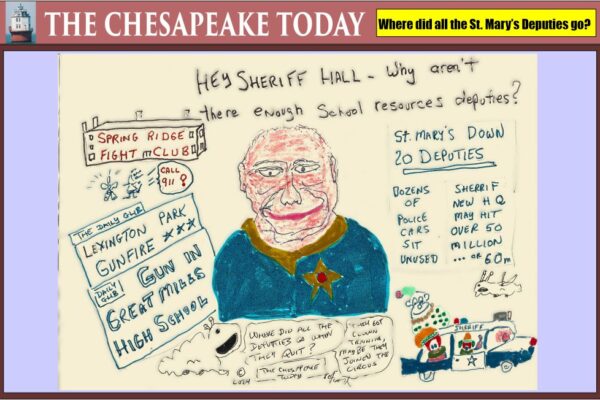 THE CHESAPEAKE TODAY
Where did all the St. Mary's Deputies go?
HEY SHERIFF HALL - Why aren't
there enough School resources deputies?
SPRING RIDGE
FIGHT CLUB
CALL
911
THE DAILY GUB
LEXINGTON PARK
GUNFIRE ★★★
DAILY
GUB
GUN IN
GREAT MILLS
HIGH SCHOOL
ST. MARY'S DOWN
20 DEPUTIES
DOZENS
OF
POLICE
CARS
SIT
UNUSED
SHERRIF
NEW HQ
MAY HIT
OVER 50
MILLION
... OR 60m
WHERE DID ALL THE
DEPUTIES GO WHEN
THEY QUIT?
THE CHESAPEAKE
TODAY
© 2024
THEY GOT
CLOWN
TRAINING,
MAYBE THEY
JOINED THE
CIRCUS
SHERIFF